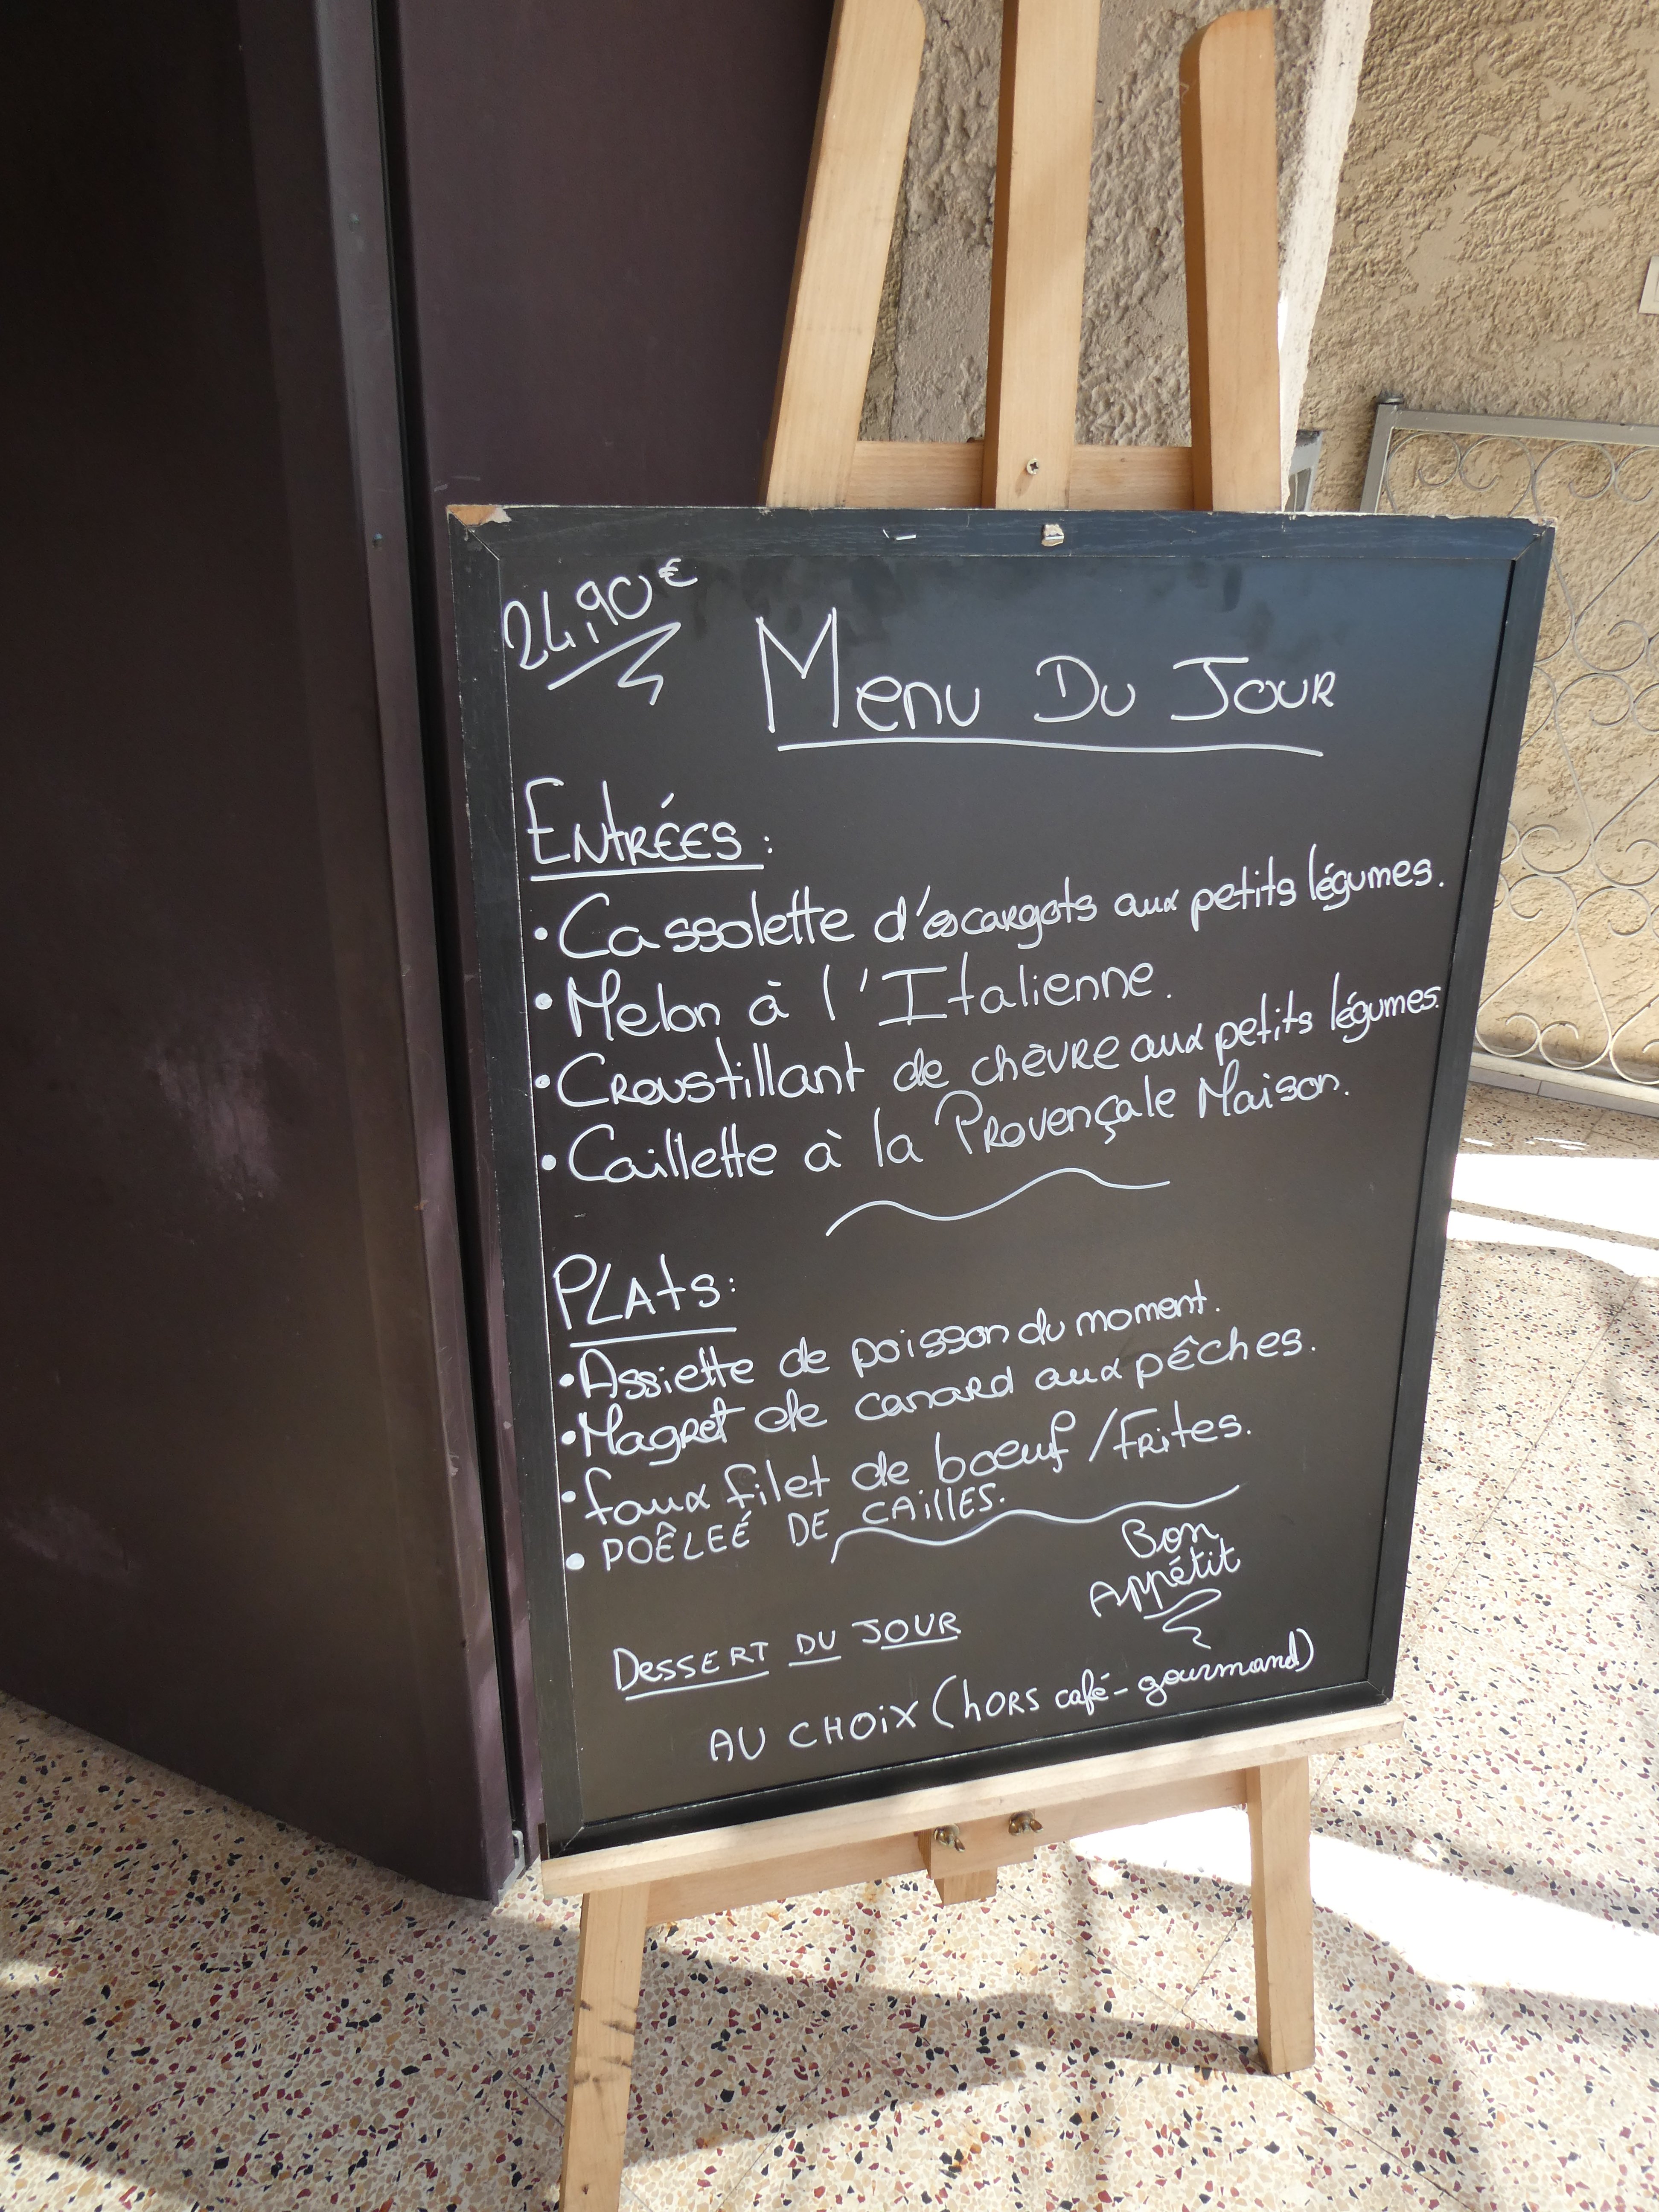 24,90€
Menu Du Jour
Entrées :
• Cassolette d'escargots aux petits légumes.
• Melon à l'Italienne.
• Croustillant de chèvre aux petits légumes.
• Caillette à la Provençale Maison.
Plats :
• Assiette de poisson du moment.
• Magret de canard aux pêches.
• faux filet de bœuf / Frites.
• POÊLEÉ DE CAiLLES.
Bon
Appétit
Dessert du Jour
AU CHOiX (hors café-gourmand)